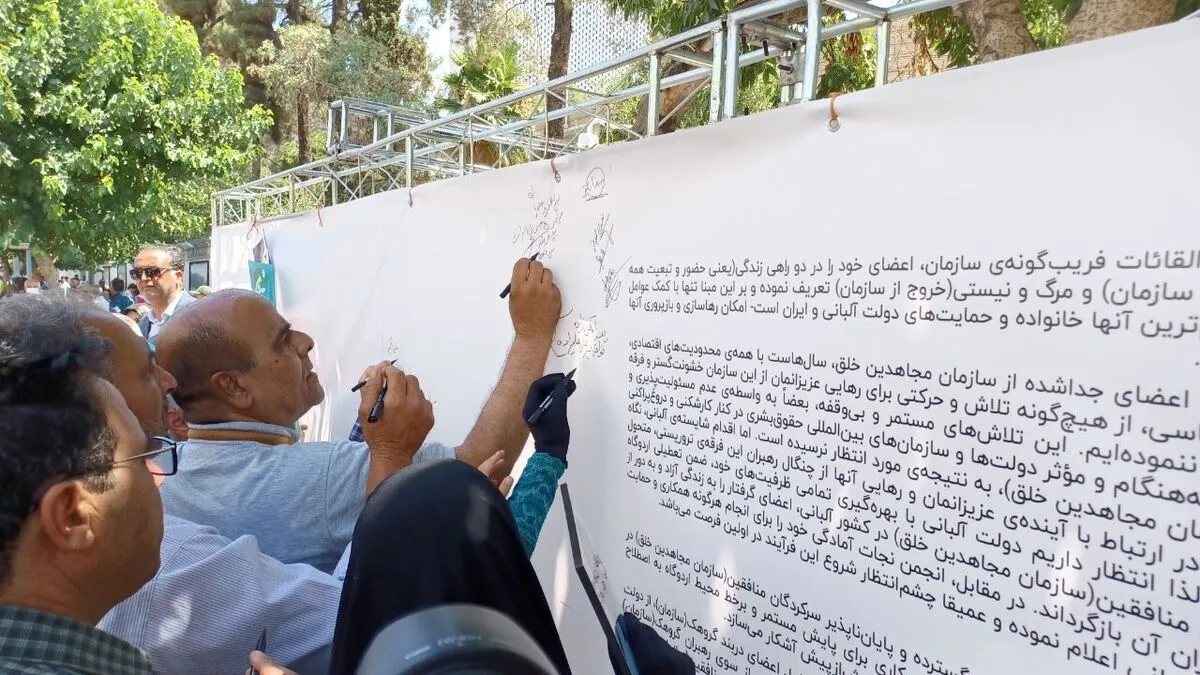 القائات فریب‌گونه‌ی سازمان، اعضای خود را در دو راهی زندگی(یعنی حضور و تبعیت همه
سازمان) و مرگ و نیستی(خروج از سازمان) تعریف نموده و بر این مبنا تنها با کمک عوامل
ترین آنها خانواده و حمایت‌های دولت آلبانی و ایران است- امکان رهاسازی و بازپروری آنها
اعضای جداشده از سازمان مجاهدین خلق، سال‌هاست با همه‌ی محدودیت‌های اقتصادی،
اسی، از هیچ‌گونه تلاش و حرکتی برای رهایی عزیزانمان از این سازمان خشونت‌گستر و فرقه
ننموده‌ایم. این تلاش‌های مستمر و بی‌وقفه، بعضاً به واسطه‌ی عدم مسئولیت‌پذیری و
ه‌هنگام و مؤثر دولت‌ها و سازمان‌های بین‌المللی حقوق‌بشری در کنار کارشکنی و دروغ‌پراکنی
ان مجاهدین خلق)، به نتیجه‌ی مورد انتظار نرسیده است. اما اقدام شایسته‌ی آلبانی، نگاه
در ارتباط با آینده‌ی عزیزانمان و رهایی آنها از چنگال رهبران این فرقه‌ی تروریستی، متحول
لذا انتظار داریم دولت آلبانی با بهره‌گیری تمامی ظرفیت‌های خود، ضمن تعطیلی اردوگاه
منافقین(سازمان مجاهدین خلق) در کشور آلبانی، اعضای گرفتار را به زندگی آزاد و به دور از
آن بازگرداند. در مقابل، انجمن نجات آمادگی خود را برای انجام هرگونه همکاری و حمایت
اعلام نموده و عمیقا چشم‌انتظار شروع این فرآیند در اولین فرصت می‌باشد.
گسترده و پایان‌ناپذیر سرکردگان منافقین(سازمان مجاهدین خلق) در
کاری برای پایش مستمر و برخط محیط اردوگاه به اصطلاح
از‌پیش آشکار می‌سازد.
اعضای دربند گروهک(سازمان)، از دولت
از سوی رهبران گروهک(سازمان)